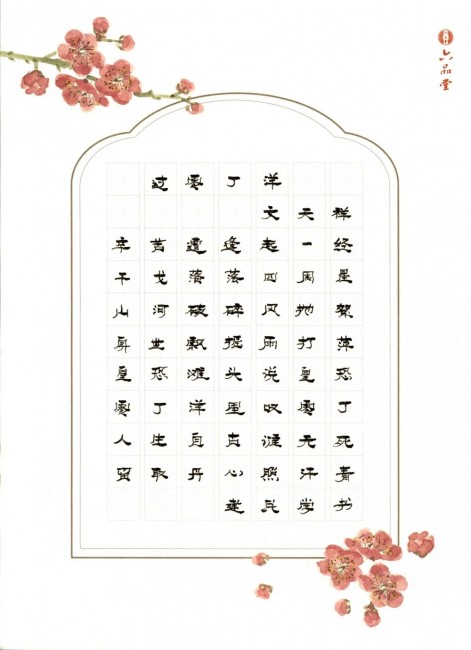 六品堂
过零丁洋
文天祥
辛苦遭逢起一经
干戈落落四周星
山河破碎风抛絮
身世飘摇雨打萍
皇恐滩头说皇恐
零丁洋里叹零丁
人生自古谁无死
留取丹心照汗青
学书